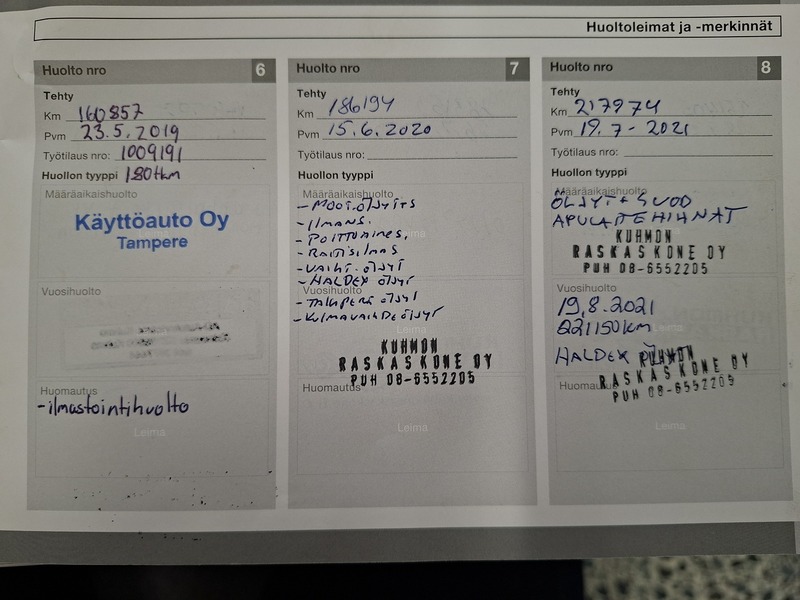 Huoltoleimat ja -merkinnät
Huolto nro 6
Tehty
Km 160857
Pvm 23.5.2019
Työtilaus nro: 1009191
Huollon tyyppi 180tkm
Määräaikaishuolto
Käyttöauto Oy
Tampere
Vuosihuolto
Huomautus
-ilmastointihuolto
Leima
Huolto nro 7
Tehty
Km 186194
Pvm 15.6.2020
Työtilaus nro:
Huollon tyyppi
Määräaikaishuolto
- ILMANS.
- RAITISILMAS
- VAIHT. ÖLJYT
- HALDEX ÖLJYT
Vuosihuolto
- KULMAVAIHDEÖLJYT
Leima
KUHMON
RASKASKONE OY
PUH 08-6552205
Huomautus
Leima
Huolto nro 8
Tehty
Km 217974
Pvm 19.7-2021
Työtilaus nro:
Huollon tyyppi
Määräaikaishuolto
ÖLJYT + SUOD
APULAITEHIHNAT
KUHMON
RASKASKONE OY
PUH 08-6552205
Vuosihuolto
19.8.2021
221150km
Leima
HALDEX
KUHMON
RASKASKONE OY
Huomautus
PUH 08-6552205
Leima